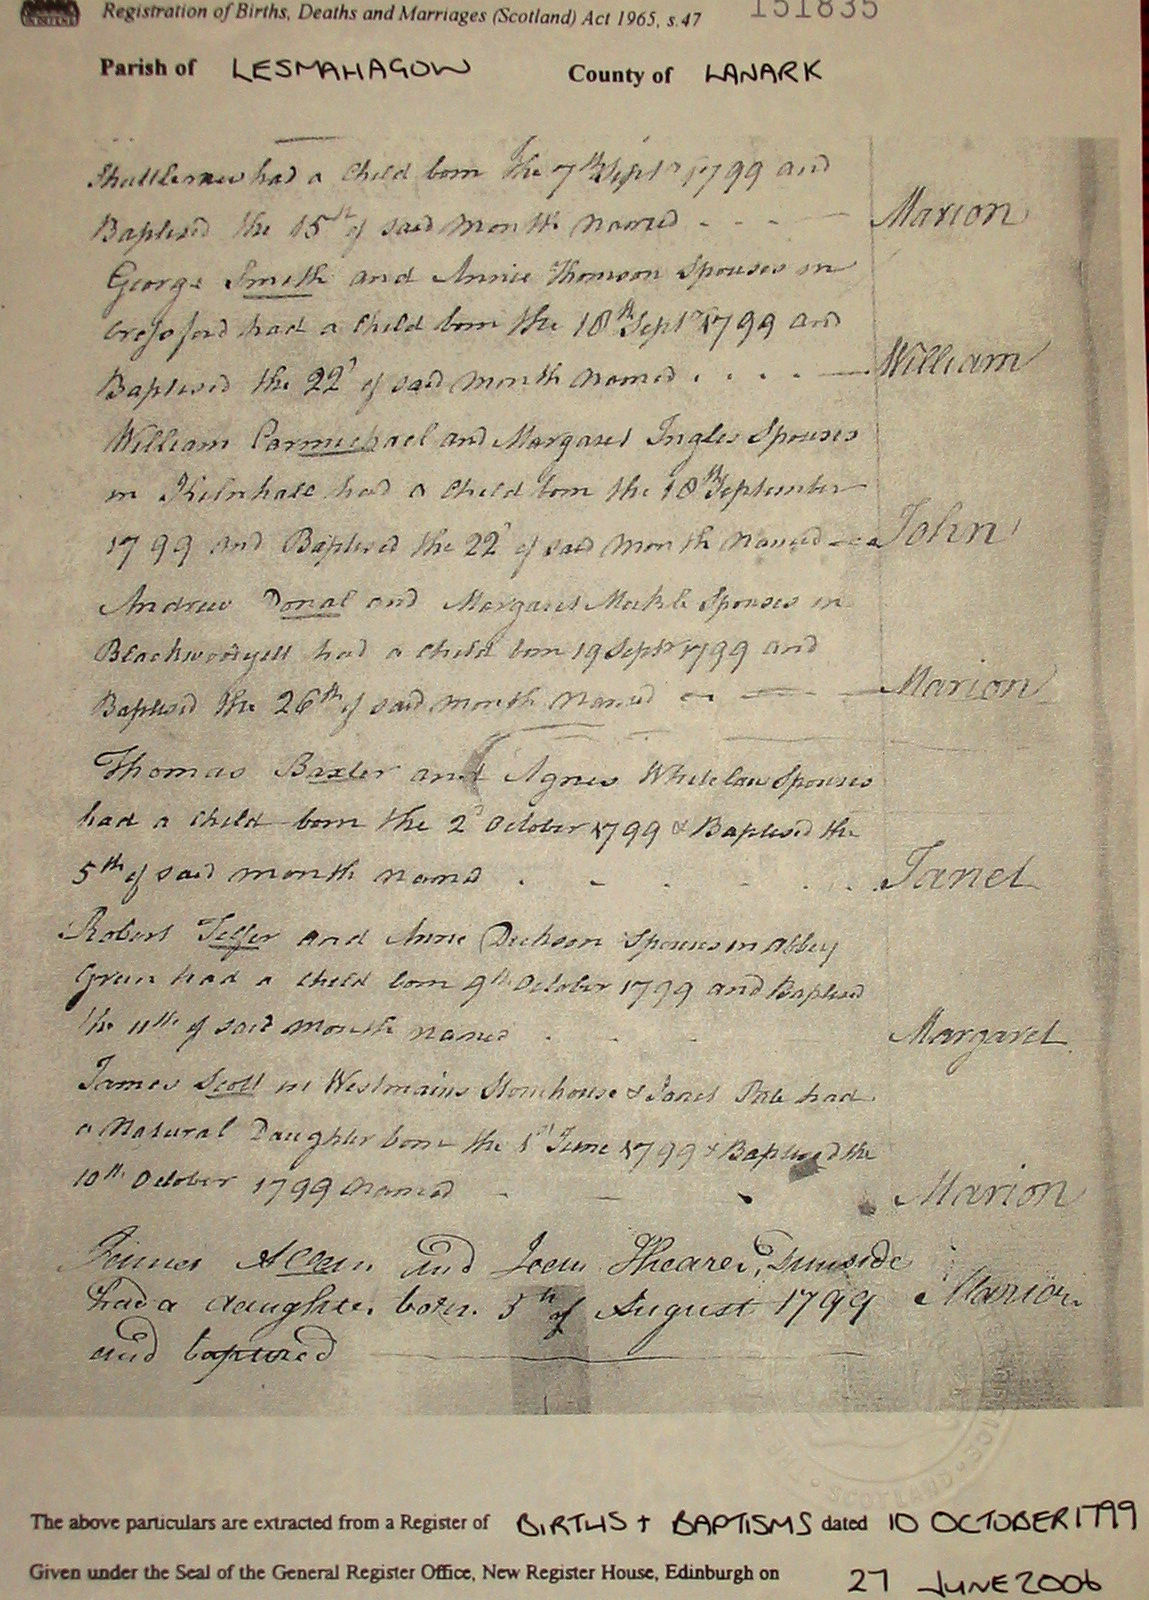 Registration of Births, Deaths and Marriages (Scotland) Act 1965, s.47 151835
Parish of LESMAHAGOW County of LANARK
had a Child born the 7th Septr 1799 and
Baptised the 15th of said Month Named - - - Marion
George Smith and Annie Thomson Spouses in
Crossford had a Child born the 18th Septr 1799 and
Baptised the 22d of said Month Named . . . . William
William Carmichael and Margaret Ingles Spouses
in had a Child born the 18th September
1799 and Baptised the 22d of said Month Named John
Andrew Donal and Margaret Meikle Spouses in
Blackwoodyett had a Child born 19 Septr 1799 and
Baptised the 26th of said Month Named Marion
Thomas Baxter and Agnes Whitelaw Spouses
had a Child born the 2d October 1799 & Baptised the
5th of said Month Named . - . - . . . Janet
Robert Telfer and Anne Dickson Spouses in Abbey
Green had a Child born 9th October 1799 and Baptised
the 11th of said Month Named . . . Margaret
James Scott in Westmains Stonehouse & Janet had
a Natural Daughter born the 1st June 1799 & Baptised the
10th October 1799 Named - - Marion
James Allan and Jean Shearer, Dunside
had a daughter born 5th of August 1799 Marion
and baptized
SCOTLAND
The above particulars are extracted from a Register of BIRTHS + BAPTISMS dated 10 OCTOBER 1799
Given under the Seal of the General Register Office, New Register House, Edinburgh on 27 JUNE 2006